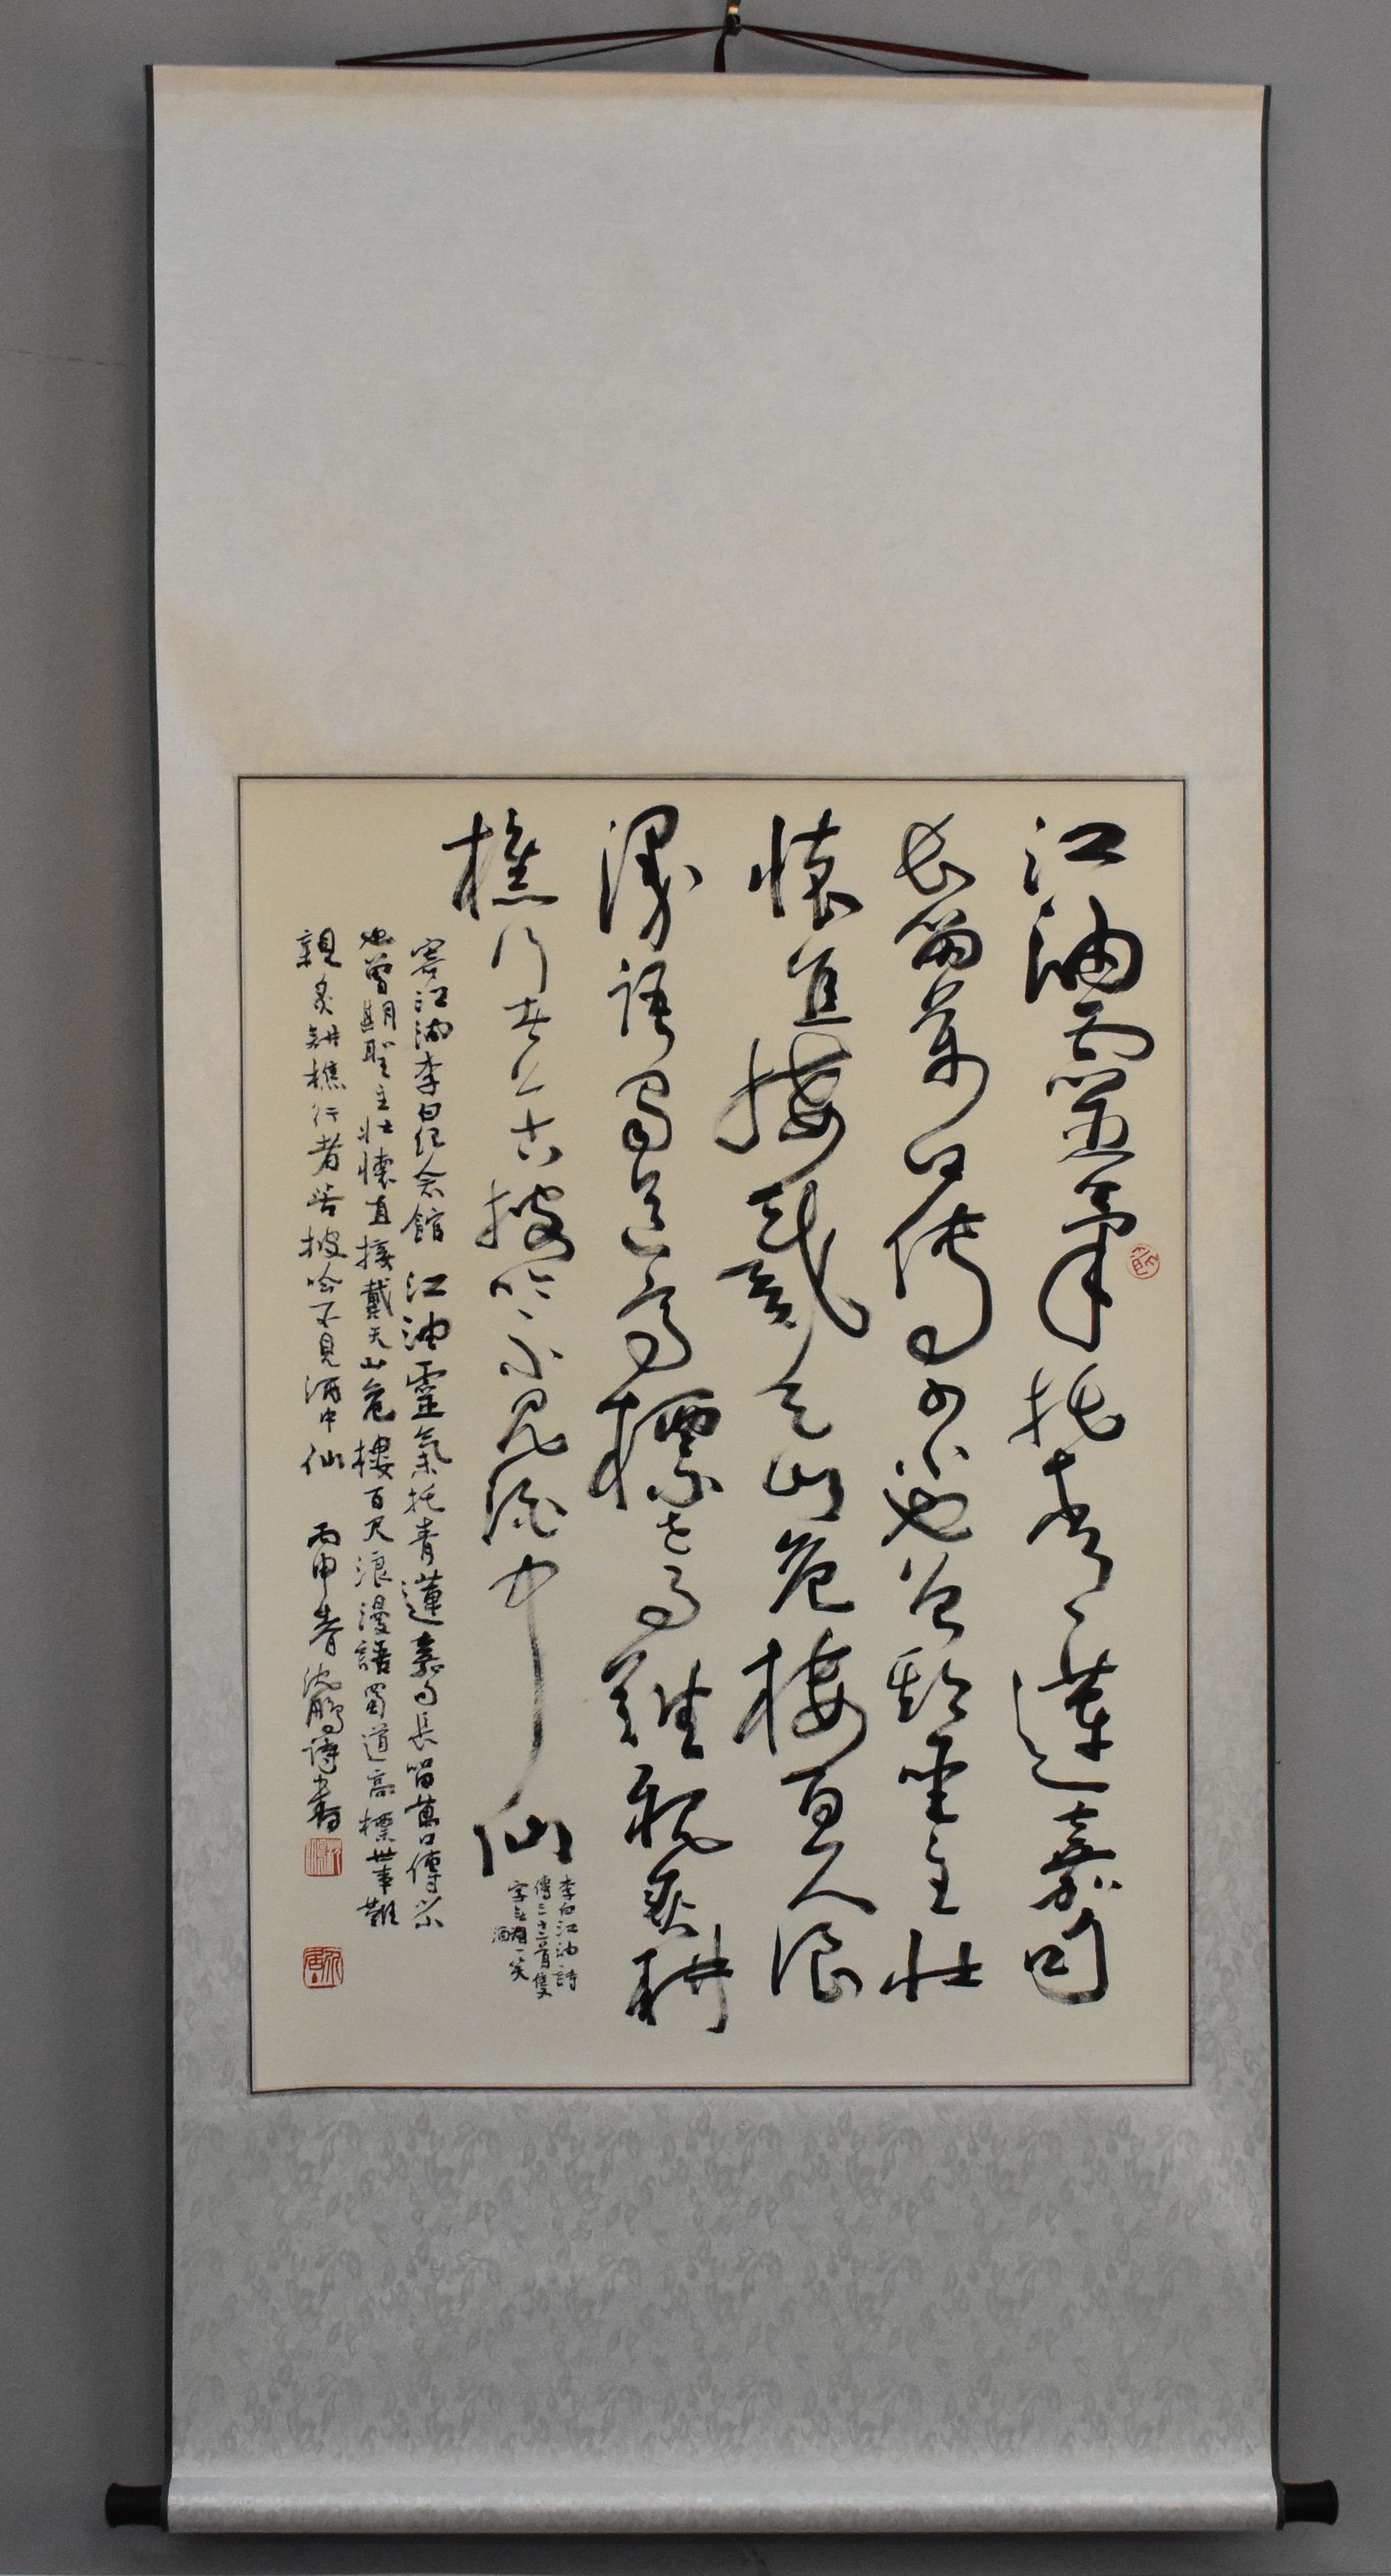 江油靈氣托青蓮嘉句
長留萬口傳少小也曾期聖主壯
懷直接戴天山危樓百尺浪
漫語蜀道高標世事難親炙耕
樵行者苦披吟不見酒中仙
李白江油詩
傳二十三首隻
字無一笑
酒
寄江油李白紀念館 江油靈氣托青蓮嘉句長留萬口傳少小
也曾期聖主壯懷直接戴天山危樓百尺浪漫語蜀道高標世事難
親炙耕樵行者苦披吟不見酒中仙 丙申春沈鵬詩書